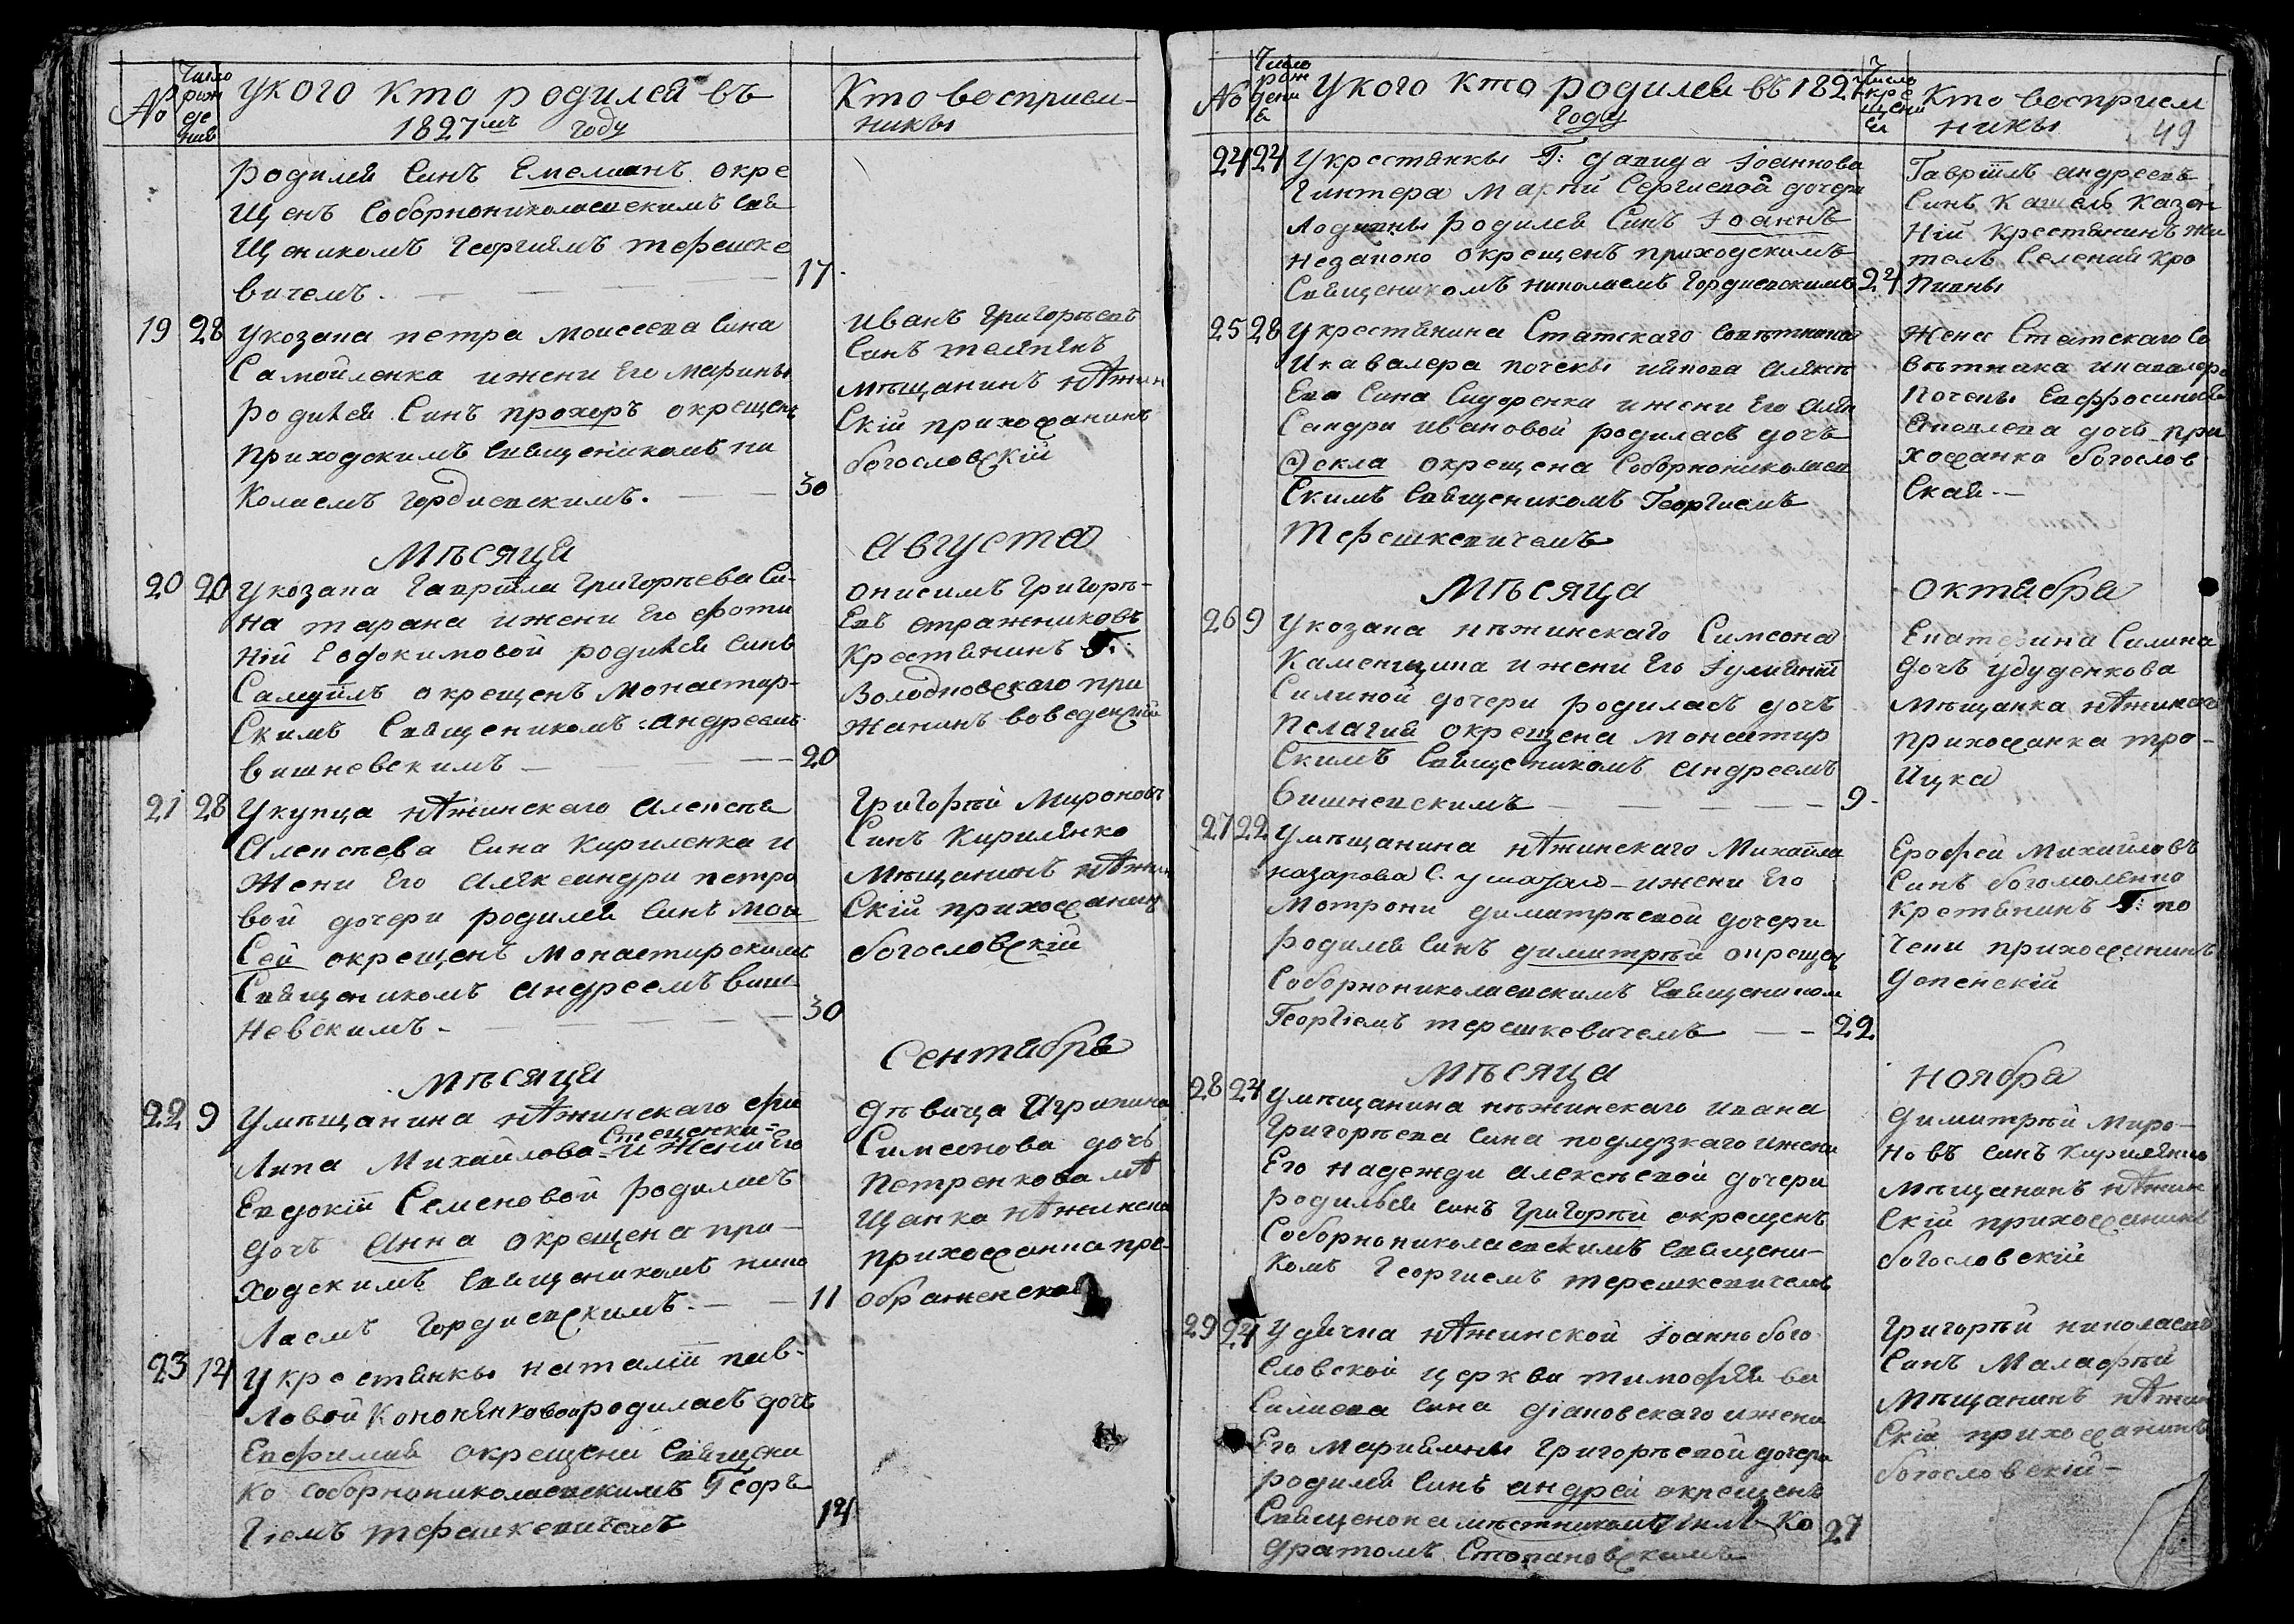 №
Число
рож
де
ния
Укого кто родился въ
1827мъ году
Кто восприем-
никы
родился Синъ Емелианъ окре
Щенъ Соборнониколаевскимъ Свя
Щеникомъ Георгиемъ терешке
вичемъ.
17.
19 28 Укозака петра Моисеева Сина
Самойленка ижени Его Марины
Родился Синъ прохоръ окрещенъ
приходскимъ Священикомъ ни
Колаемъ Гордиевскимъ.
30
Иванъ Григорьевъ
Синъ
мѣщанинъ нѣжин
Скій прихожанинъ
богословскій
Мѣсяца
Августа
20 20 Укозака Гавріила Григорьева Си-
на тарана ижени Его фоти
ній Евдокимовой родился Синъ
Самуилъ окрещенъ Монастир-
Скимъ Священикомъ андреемъ
вишневскимъ
20
онисимъ Григорь-
Евъ стражниковъ
Крестянинъ Г:
Володковскаго при
жанинъ воведенскій
21 28 Укупца нѣжинскаго Алексѣя
Алексѣева Сина Кириленка и
Жени Его Александри петро
вой дочери родился Синъ Мои
Сей окрещенъ Монастирскимъ
Священикомъ андреемъ виш
невскимъ-
30
Григорій Мироновъ
Синъ Кирилянко
Мѣщанинъ нѣжин
Скій прихожанинъ
богословскій
Мѣсяца
Сентября
22 9 Умѣщанина нѣжинскаго фи
Стеценка=
Липа Михайлова=и Жени Его
Евдокіи Семеновой родилась
дочъ Анна окрещена при-
ходскимъ Священикомъ нико
Лаемъ Гордиевскимъ.
11
дѣвица Агрипина
Симеонова дочъ
Петренкова мѣ
Щанка нѣжинска
прихожанка пре-
ображенская
23 14 Укрестянкы наталіи пав-
ловой Кононянковой родилась дочъ
Евфимия окрещени Священи
ко Соборнониколаевскимъ Геор
гіемъ терешкевичемъ
14
№
Число
рож
дени
я
Укого кто родился въ 1827
году
Число
кре
щени
я
Кто восприем
никы
49
24 24 Укрестянкы Г: давида Іоаннова
Гинтера Марѳи Сергиевой дочери
Лодкины родился Синъ Іоаннъ
незаконо окрещенъ приходскимъ
Священикомъ николаемъ Гордиевскимъ
24
Гавріилъ андреевъ
Синъ Кашель казен
ній Крестянинъ жи
тель Селения Кро
пивны
25 28 Укрестянина Статскаго совѣтника
Икавалера почекы
Ева Сина Сидоренка ижени Его Алек
Сандри Ивановой родилась дочъ
Ѳекла окрещена Соборнониколаев
Скимъ Священикомъ Георгиемъ
Терешкевичемъ
Жена Статскаго Со
вѣтника икавалера
Почекы Евфросиния
дочъ при
хожанка богослов
Ская.-
Мѣсяца
октября
26 9 Укозака нѣжинскаго Симеона
Каменщика ижени Его Іулианіи
Силиной дочери родилась дочъ
Пелагия окрещена Монастир
Скимъ Священикомъ андреемъ
вишневскимъ
9.
Екатерина Силина
дочъ
Мѣщанка нѣжинска
прихожанка тро-
ицка
27 22 Умѣщанина нѣжинскаго Михайла
назарова С. ижени Его
Мотрони димитрѣевой дочери
родился Синъ димитрій окрещенъ
Соборнониколаевскимъ Священиком
Георгіемъ терешкевичемъ
22
Ерофей Михайловъ
Синъ богомоленко
Крстянинъ Г: по
чеки прихожанинъ
Мѣсяца
Ноября
28 24 Умѣщанина нѣжинскаго ивана
Григорьева Сина подлузкаго ижени
Его надежди алексѣевой дочери
родился синъ Григорій окрещенъ
Соборнониколаевскимъ Священи-
комъ Георгиемъ терешкевичемъ
димитрій Миро-
новъ синъ Кирилянко
Мѣщанинъ нѣжин
Скій прихожанинъ
богословскій
29 24 Удячка нѣжинской Іоаннобого
словской церкви тимофѣя ва
Силиева Сина діановскаго ижени
Его Мариамны Григорьевой дочери
родился Синъ андрей окрещенъ
Ко
дратомъ Стопановскимъ
27
Григорій николаевъ
Синъ Малафѣй
Мѣщанинъ нѣжин
Скій прихожанинъ
богословскій-